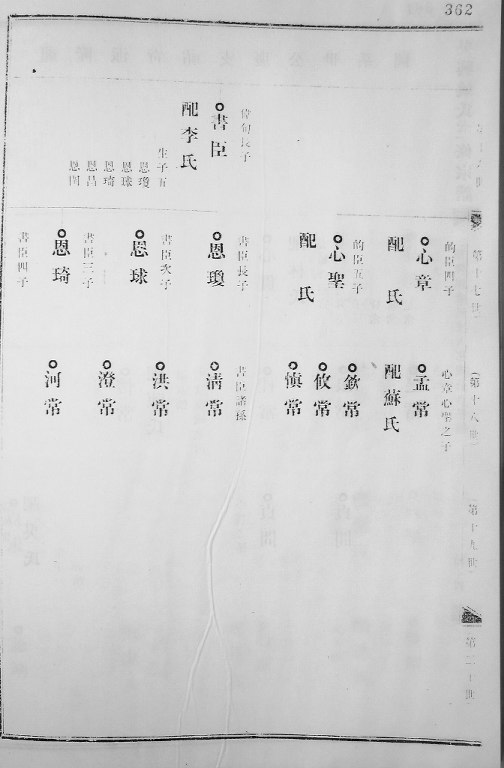 362
第十七世
第十八世
第十九世
第二十世
書臣
配李氏
生子五
恩瓊
恩球
恩琦
恩昌
的臣四子
心章
配 氏
的臣五子
心聖
配 氏
書臣長子
恩瓊
書臣次子
恩球
書臣三子
恩琦
書臣四子
心章心聖之子
孟常
配蘇氏
欽常
攸常
慎常
書臣諸孫
清常
洪常
澄常
河常